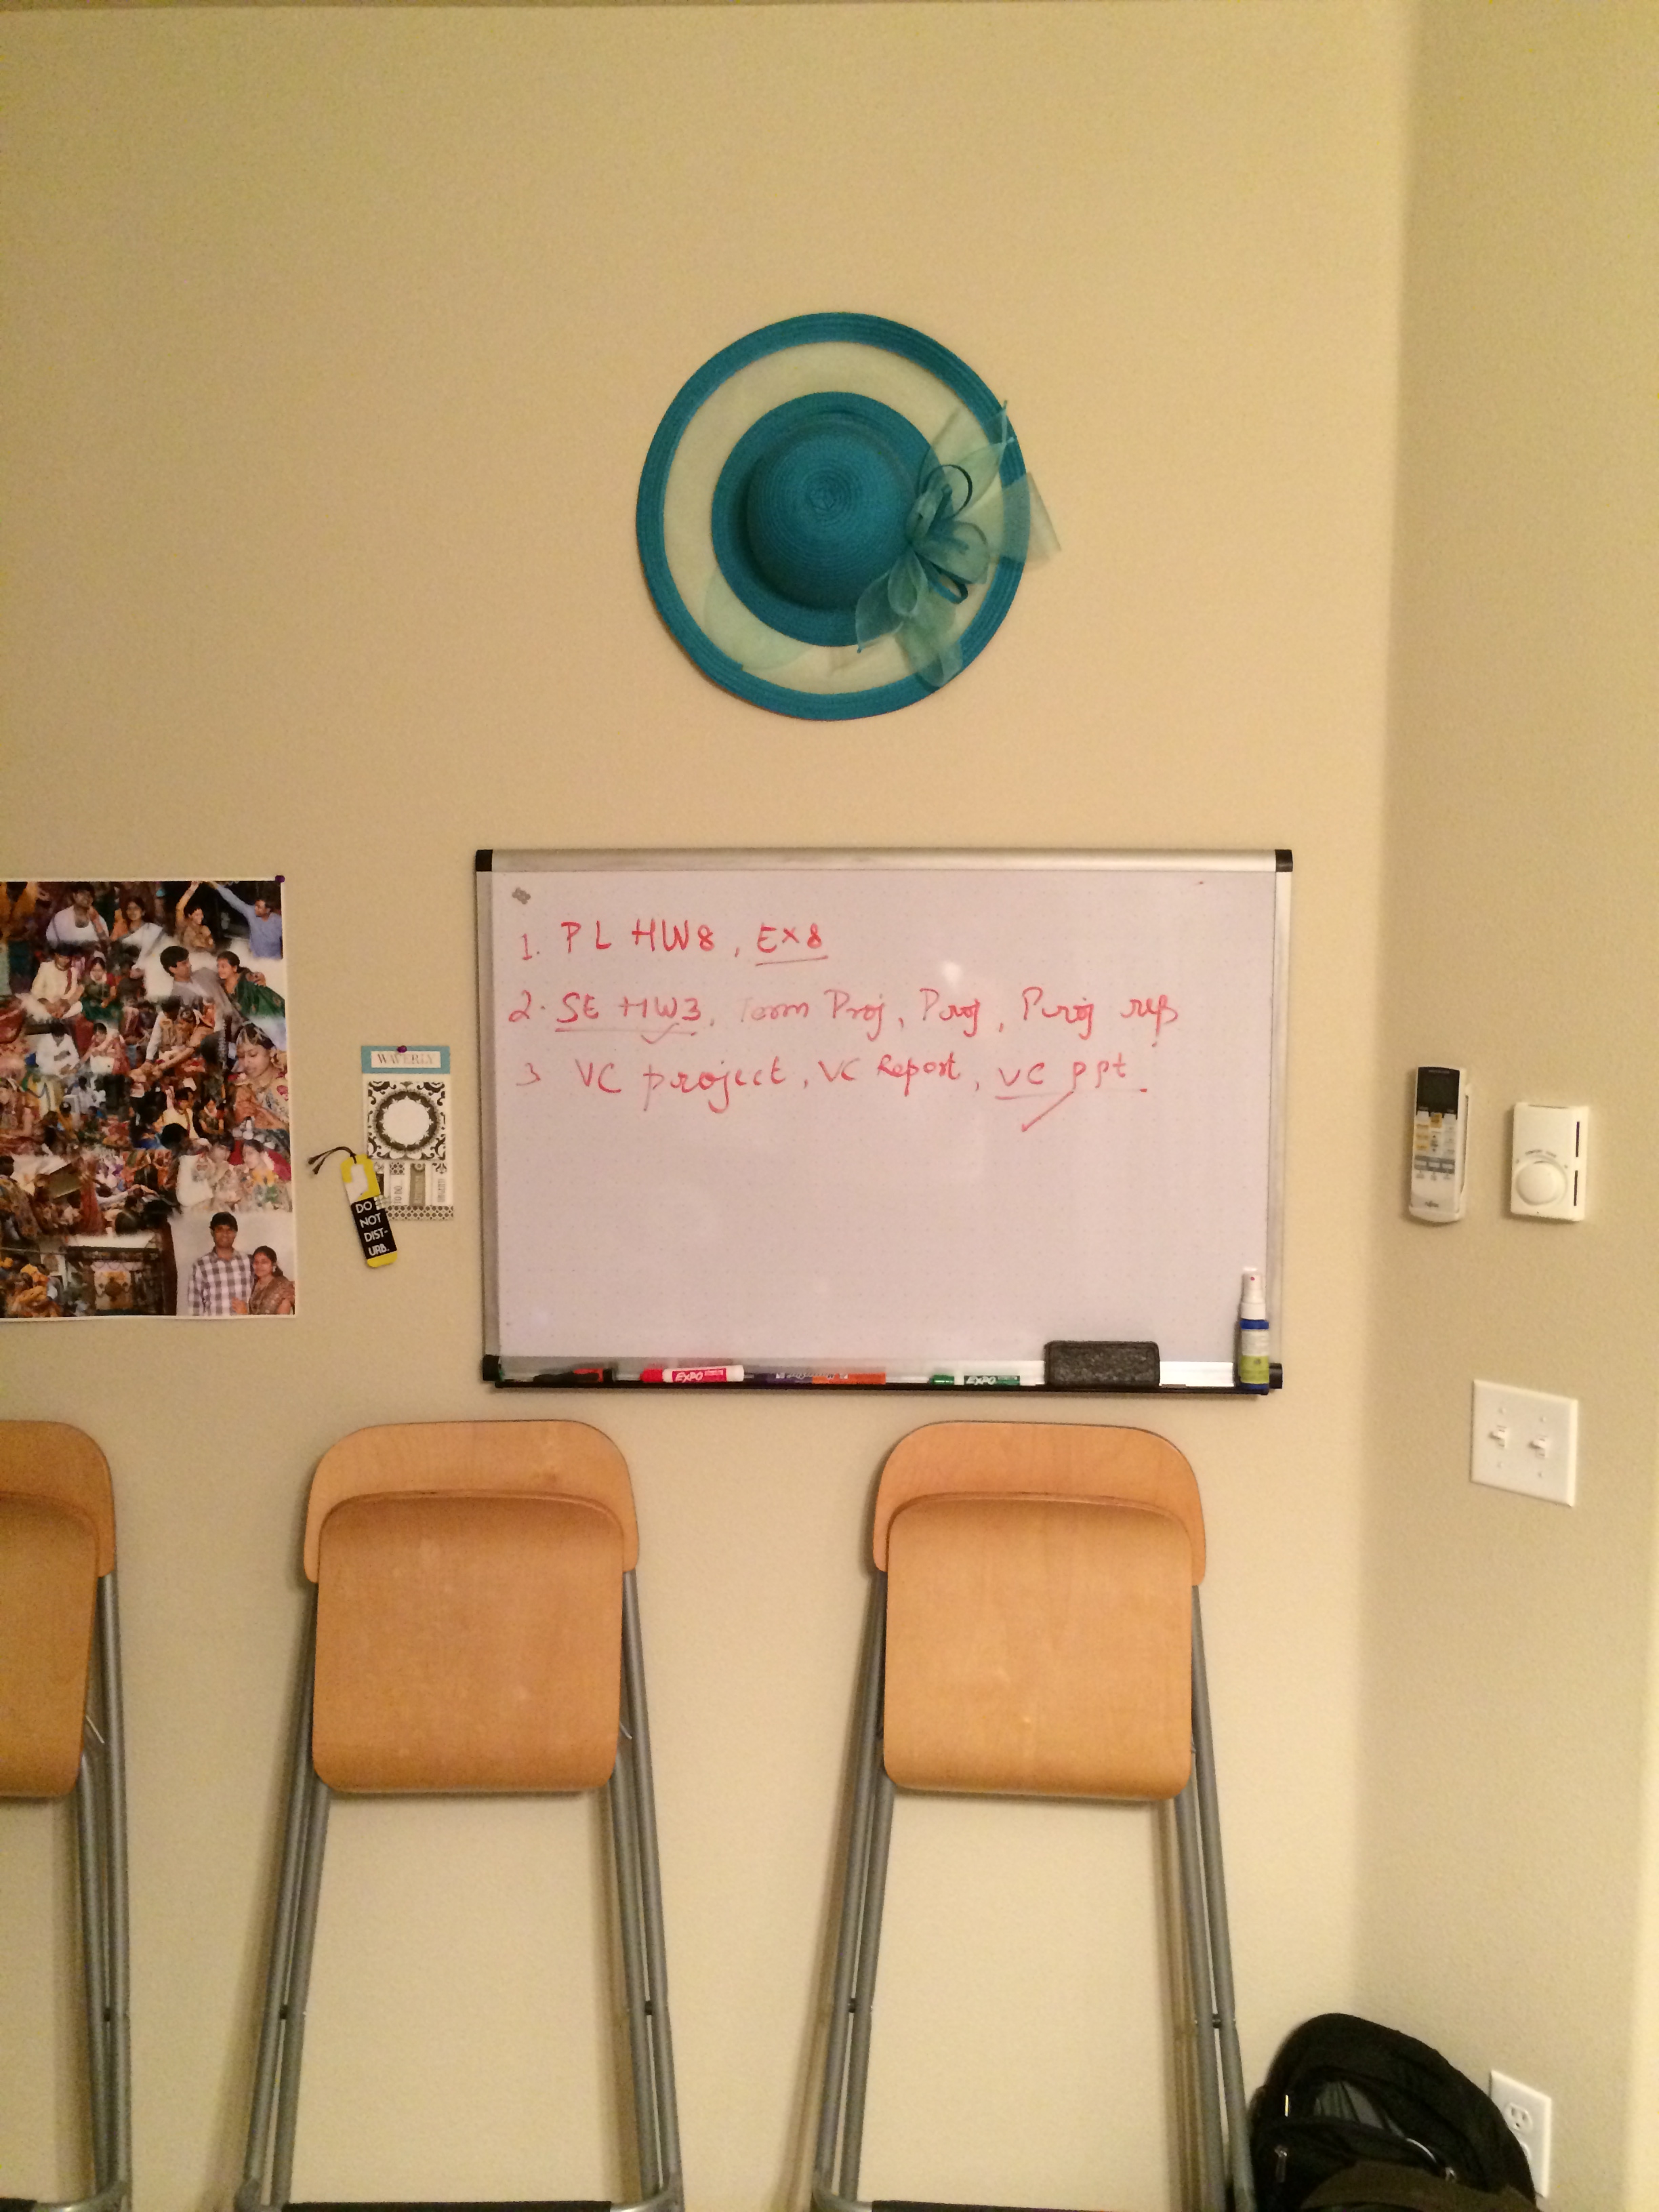 1. PL HW8, EX8
2. SE HW3, Term Proj, Proj, Proj rep
3 VC project, VC Report, VC ppt.
WAVERLY
DO
NOT
DIST-
URB.
EXPO
EXPO